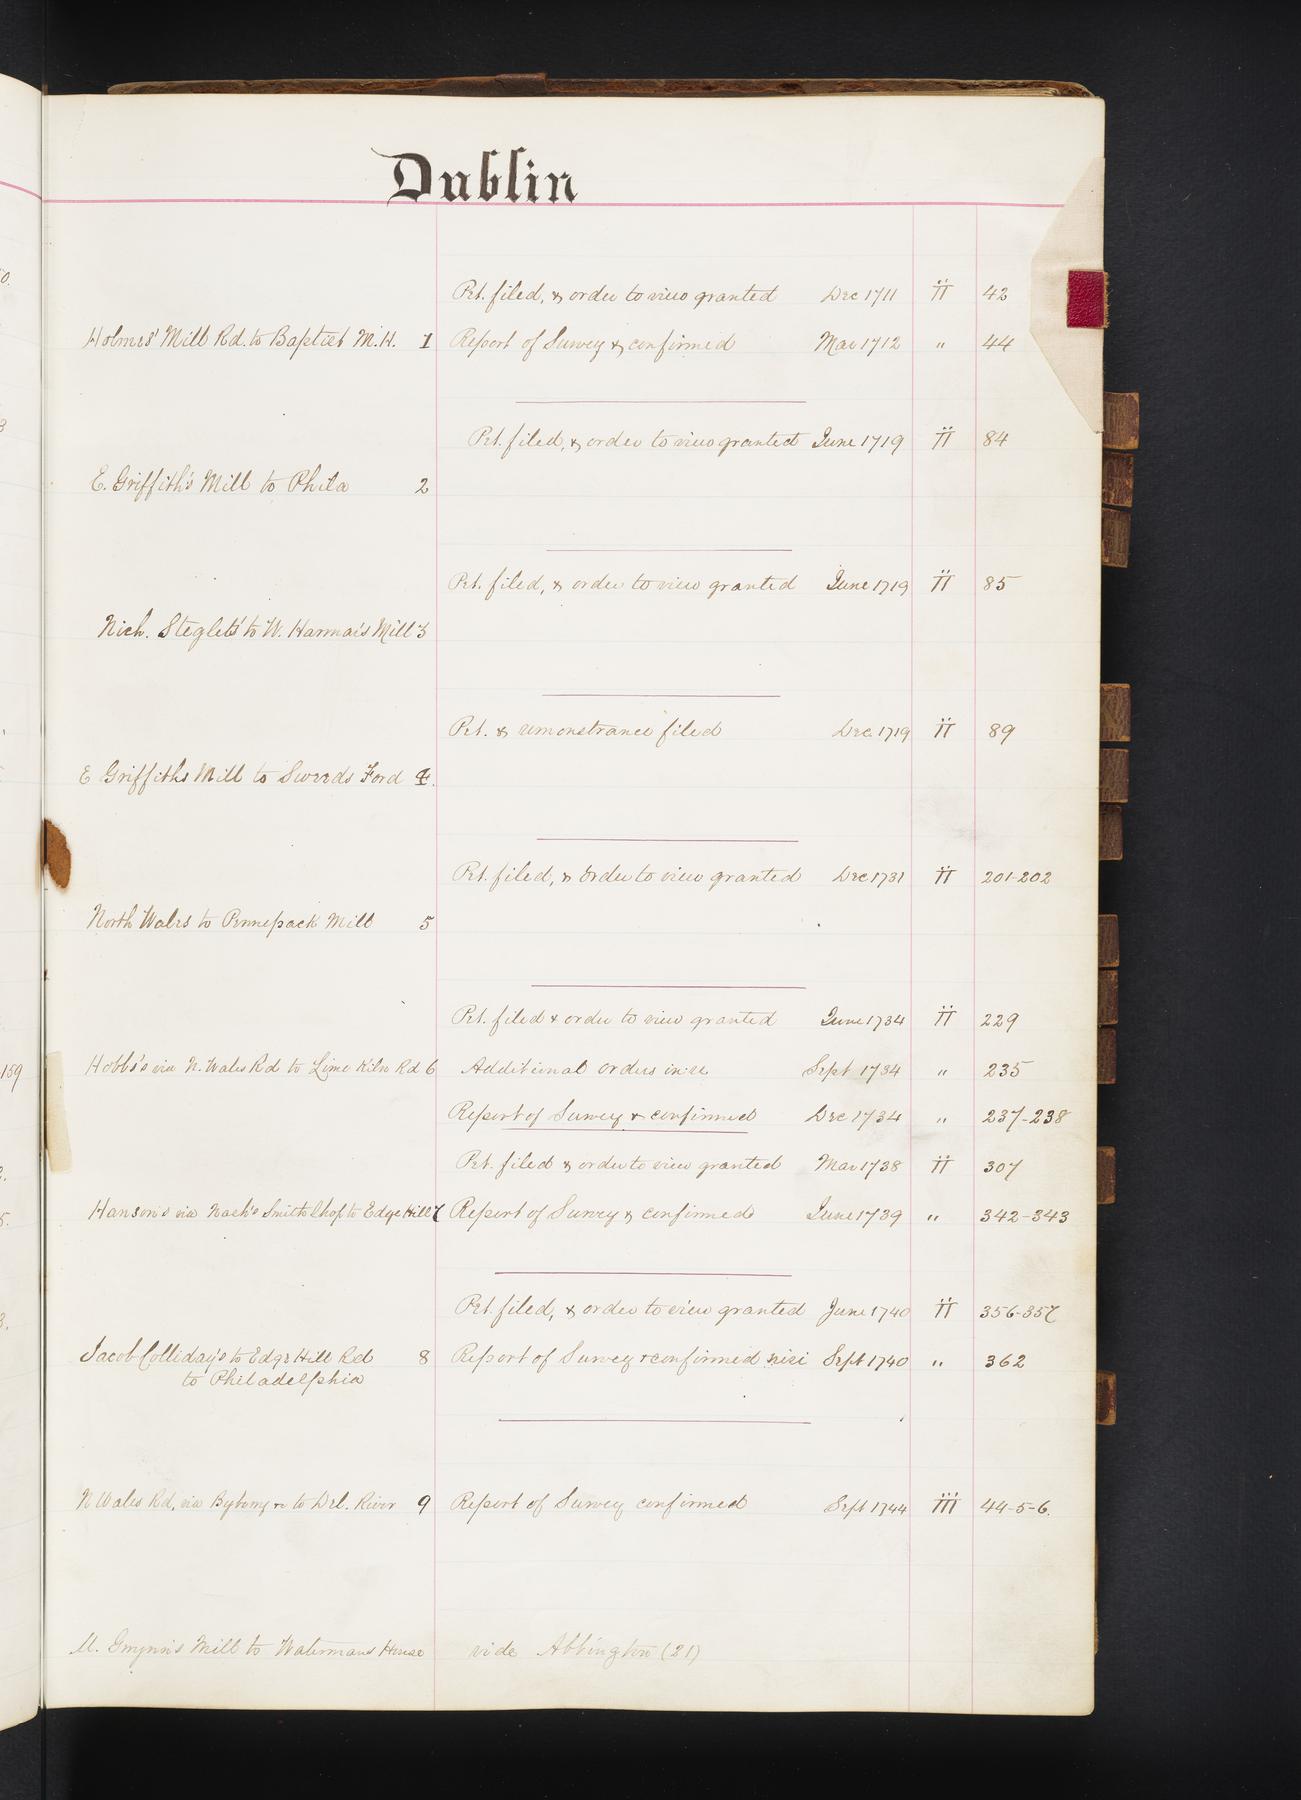 Dublin
Pet. filed, & order to view granted Dec 1711 II 42
Holmes' Mill Rd. to Baptist M.H. 1 Report of Survey & confirmed Mar 1712 " 44
Pet. filed, & order to view granted June 1719 II 84
E. Griffith's Mill to Phila 2
Pet. filed, & order to view granted June 1719 II 85
Nich. Steglets' to W. Harma's Mill 3
Pet. & remonstrance filed Dec. 1719 II 89
E Griffiths Mill to Sweeds Ford 4.
Pet. filed, & order to view granted Dec 1731 II 201-202
North Wales to Pennepack Mill 5
Pet. filed & order to view granted June 1734 II 229
159
Hobbs's via N. Wales Rd to Lime Kiln Rd 6 Additional orders in re Sept 1734 " 235
Report of Survey & confirmed Dec 1734 " 237-238
Pet. filed & order to view granted Mar 1738 II 307
Hanson's via Nash's Smith Shop to Edge Hill 7 Report of Survey & confirmed June 1739 " 342-343
Pet. filed, & order to view granted June 1740 II 356-357
Jacob Colliday's to Edge Hill Rd 8 Report of Survey & confirmed nisi Sept 1740 " 362
to Philadelphia
N Wales Rd, via Byberry &c to Del. River 9 Report of Survey confirmed Sept 1744 III 44-5-6.
M. Gwynn's Mill to Watermans House vide Abbington (21)